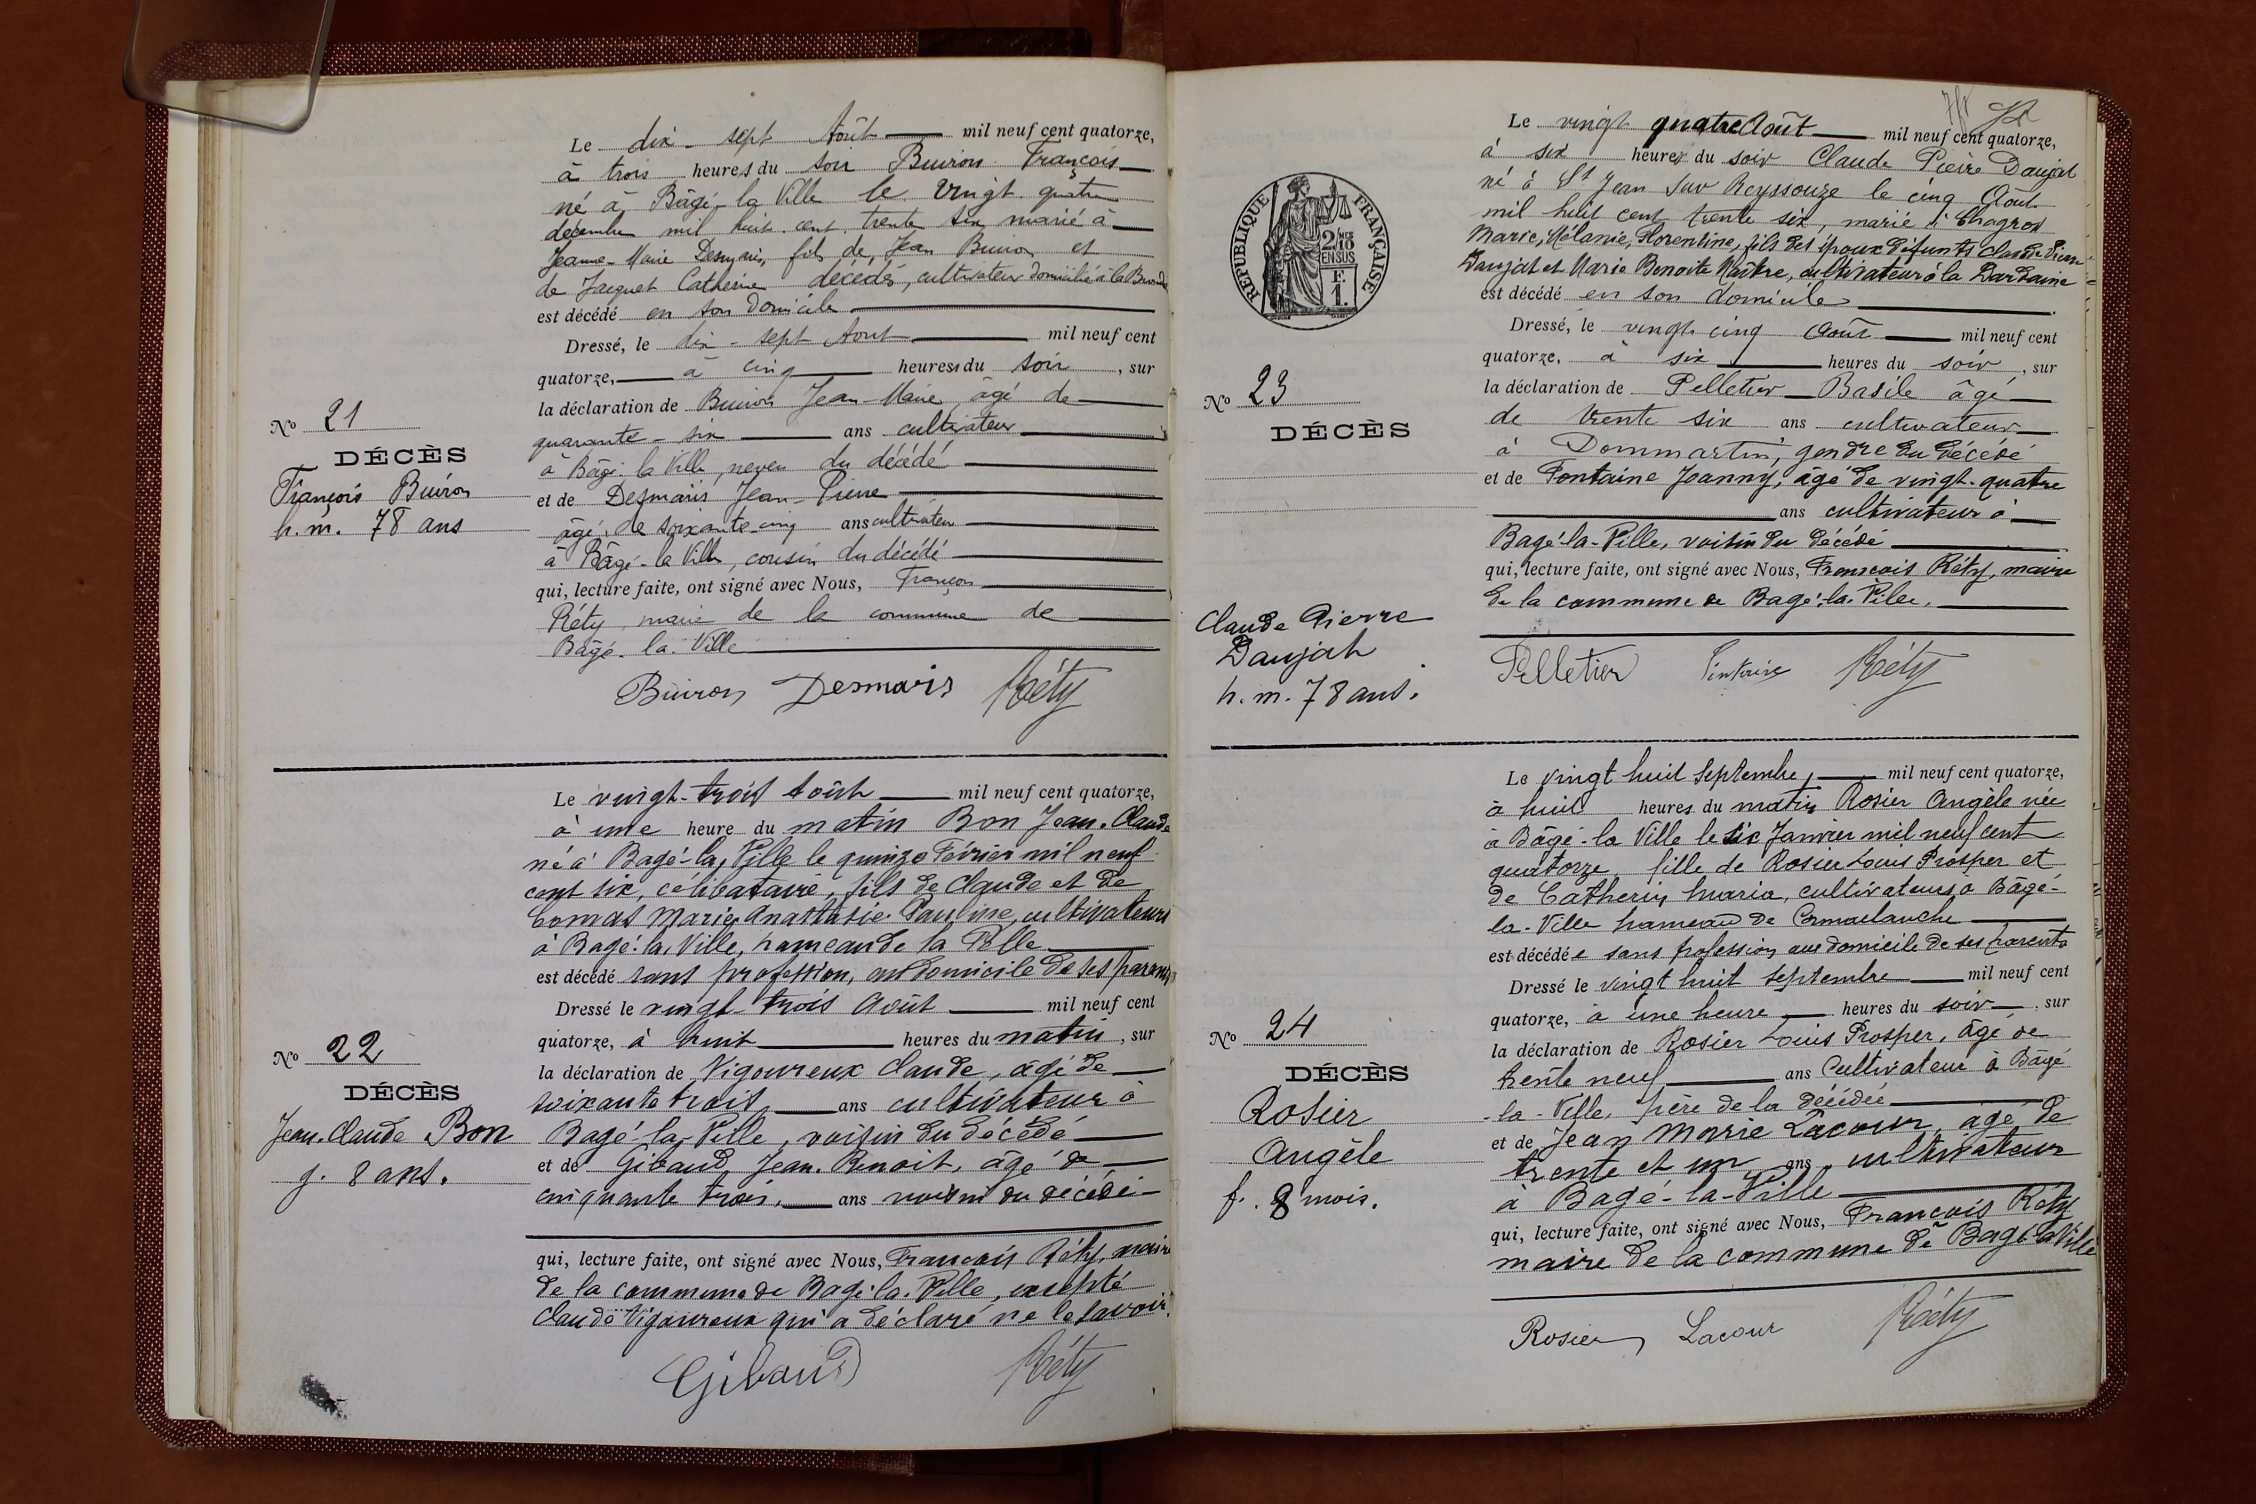 Le dix-sept Août mil neuf cent quatorze,
à trois heures du soir Buiron François
né à Bâgé-la Ville le vingt quatre
décembre mil huit cent trente six marié à
Jeanne-Marie Desmaris, fils de, Jean Buiron et
de Jacquet Catherine décédés, cultivateur domicilié à la
est décédé en son domicile
Dressé, le dix-sept Aout mil neuf cent
quatorze, à cinq heures du soir, sur
la déclaration de Buiron Jean-Marie, âgé de
quarante-six ans cultivateur
à Bâgé-la Ville, neveu du décédé
et de Desmaris Jean-Pierre
âgé de soixante-cinq ans cultivateur
à Bâgé-la Ville, cousin du décédé
qui, lecture faite, ont signé avec Nous, François
Réty, maire de la commune de
Bâgé-la-Ville
Buiron Desmaris Réty
No 21
DÉCÈS
François Buiron
h. m. 78 ans
Le vingt-trois Août mil neuf cent quatorze,
à une heure du matin Bon Jean-Claude
né à Bagé-la-Ville le quinze Février mil neuf
cent six, célibataire, fils de Claude et de
Comas Marie, Anasthasie-Pauline, cultivateurs
à Bagé-la-Ville, hameau de la
est décédé sans profession, au domicile de ses parents
Dressé le vingt-trois Août mil neuf cent
quatorze, à huit heures du matin, sur
la déclaration de Vigoureux Claude, âgé de
soixante trois, ans cultivateur à
Bagé-la-Ville, voisin du décédé
et de Gibaud, Jean-Benoit, âgé de
cinquante trois, ans voisin du décédé
qui, lecture faite, ont signé avec Nous, François Réty, maire
de la commune de Bagé-la-Ville, excepté
Claude Vigoureux qui a déclaré ne le savoir.
Gibaud Réty
No 22
DÉCÈS
Jean-Claude Bon
g. 8 ans.
RÉPUBLIQUE FRANÇAISE
2/10 EN SUS
F.
1.
Le vingt quatre Août mil neuf cent quatorze,
à six heures du soir Claude Pierre Daujat
né à St Jean sur Reyssouze le cinq Août
mil huit cent trente six, marié à Chagros
Marie, Mélanie, Florentine, fils des époux défunts Claude Pierre
Daujat et Marie Benoite Maître, cultivateur à la Dardaine
est décédé en son domicile
Dressé, le vingt-cinq Août mil neuf cent
quatorze, à six heures du soir, sur
la déclaration de Pelletier Basile âgé
de trente six ans cultivateur
à Dommartin, gendre du décédé
et de Fontaine Joanny, âgé de vingt-quatre
ans cultivateur à
Bagé-la-Ville, voisin du décédé
qui, lecture faite, ont signé avec Nous, François Réty, maire
de la commune de Bagé-la-Ville.
Pelletier Réty
No 23
DÉCÈS
Claude Pierre
Daujat
h. m. 78 ans.
Le vingt huit Septembre, mil neuf cent quatorze,
à huit heures du matin Rosier Angèle née
à Bâgé-la Ville le six Janvier mil neuf cent
quatorze fille de Rosier Louis Prosper et
de Catherin Maria, cultivateurs à Bâgé-
la-Ville hameau de
est décédée sans profession au domicile de ses parents
Dressé le vingt huit septembre mil neuf cent
quatorze, à une heure heures du soir, sur
la déclaration de Rosier Louis Prosper, âgé de
trente neuf ans Cultivateur à Bâgé
-la-Ville, père de la décédée
et de Jean Marie Lacour, âgé de
trente et un, ans, cultivateur
à Bagé-la-Ville
qui, lecture faite, ont signé avec Nous, François Réty
maire de la commune de Bagé-la-Ville
Rosier Lacour Réty
No 24
DÉCÈS
Rosier
Angèle
f. 8 mois.